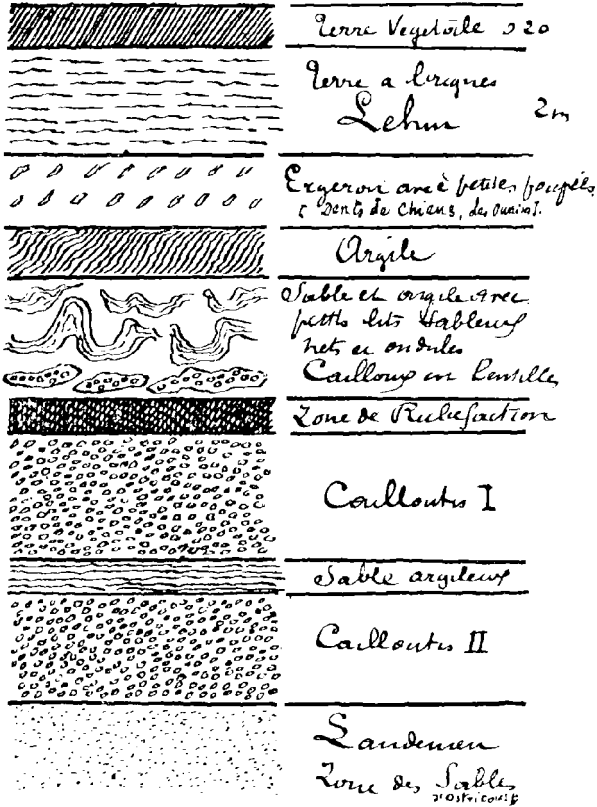 Terre Vegetale 0 20
Terre a briques
Lehm 2m
Ergeron avec petites poupées
( Dents de chiens, des
Argile
Sable et argile avec
petits lits sableux
nets en ondules
Cailloux en lentilles
Zone de Rubefaction
Cailloutis I
Sable argileux
Cailloutis II
Landenien
Zone des Sables
d'Ostricourt